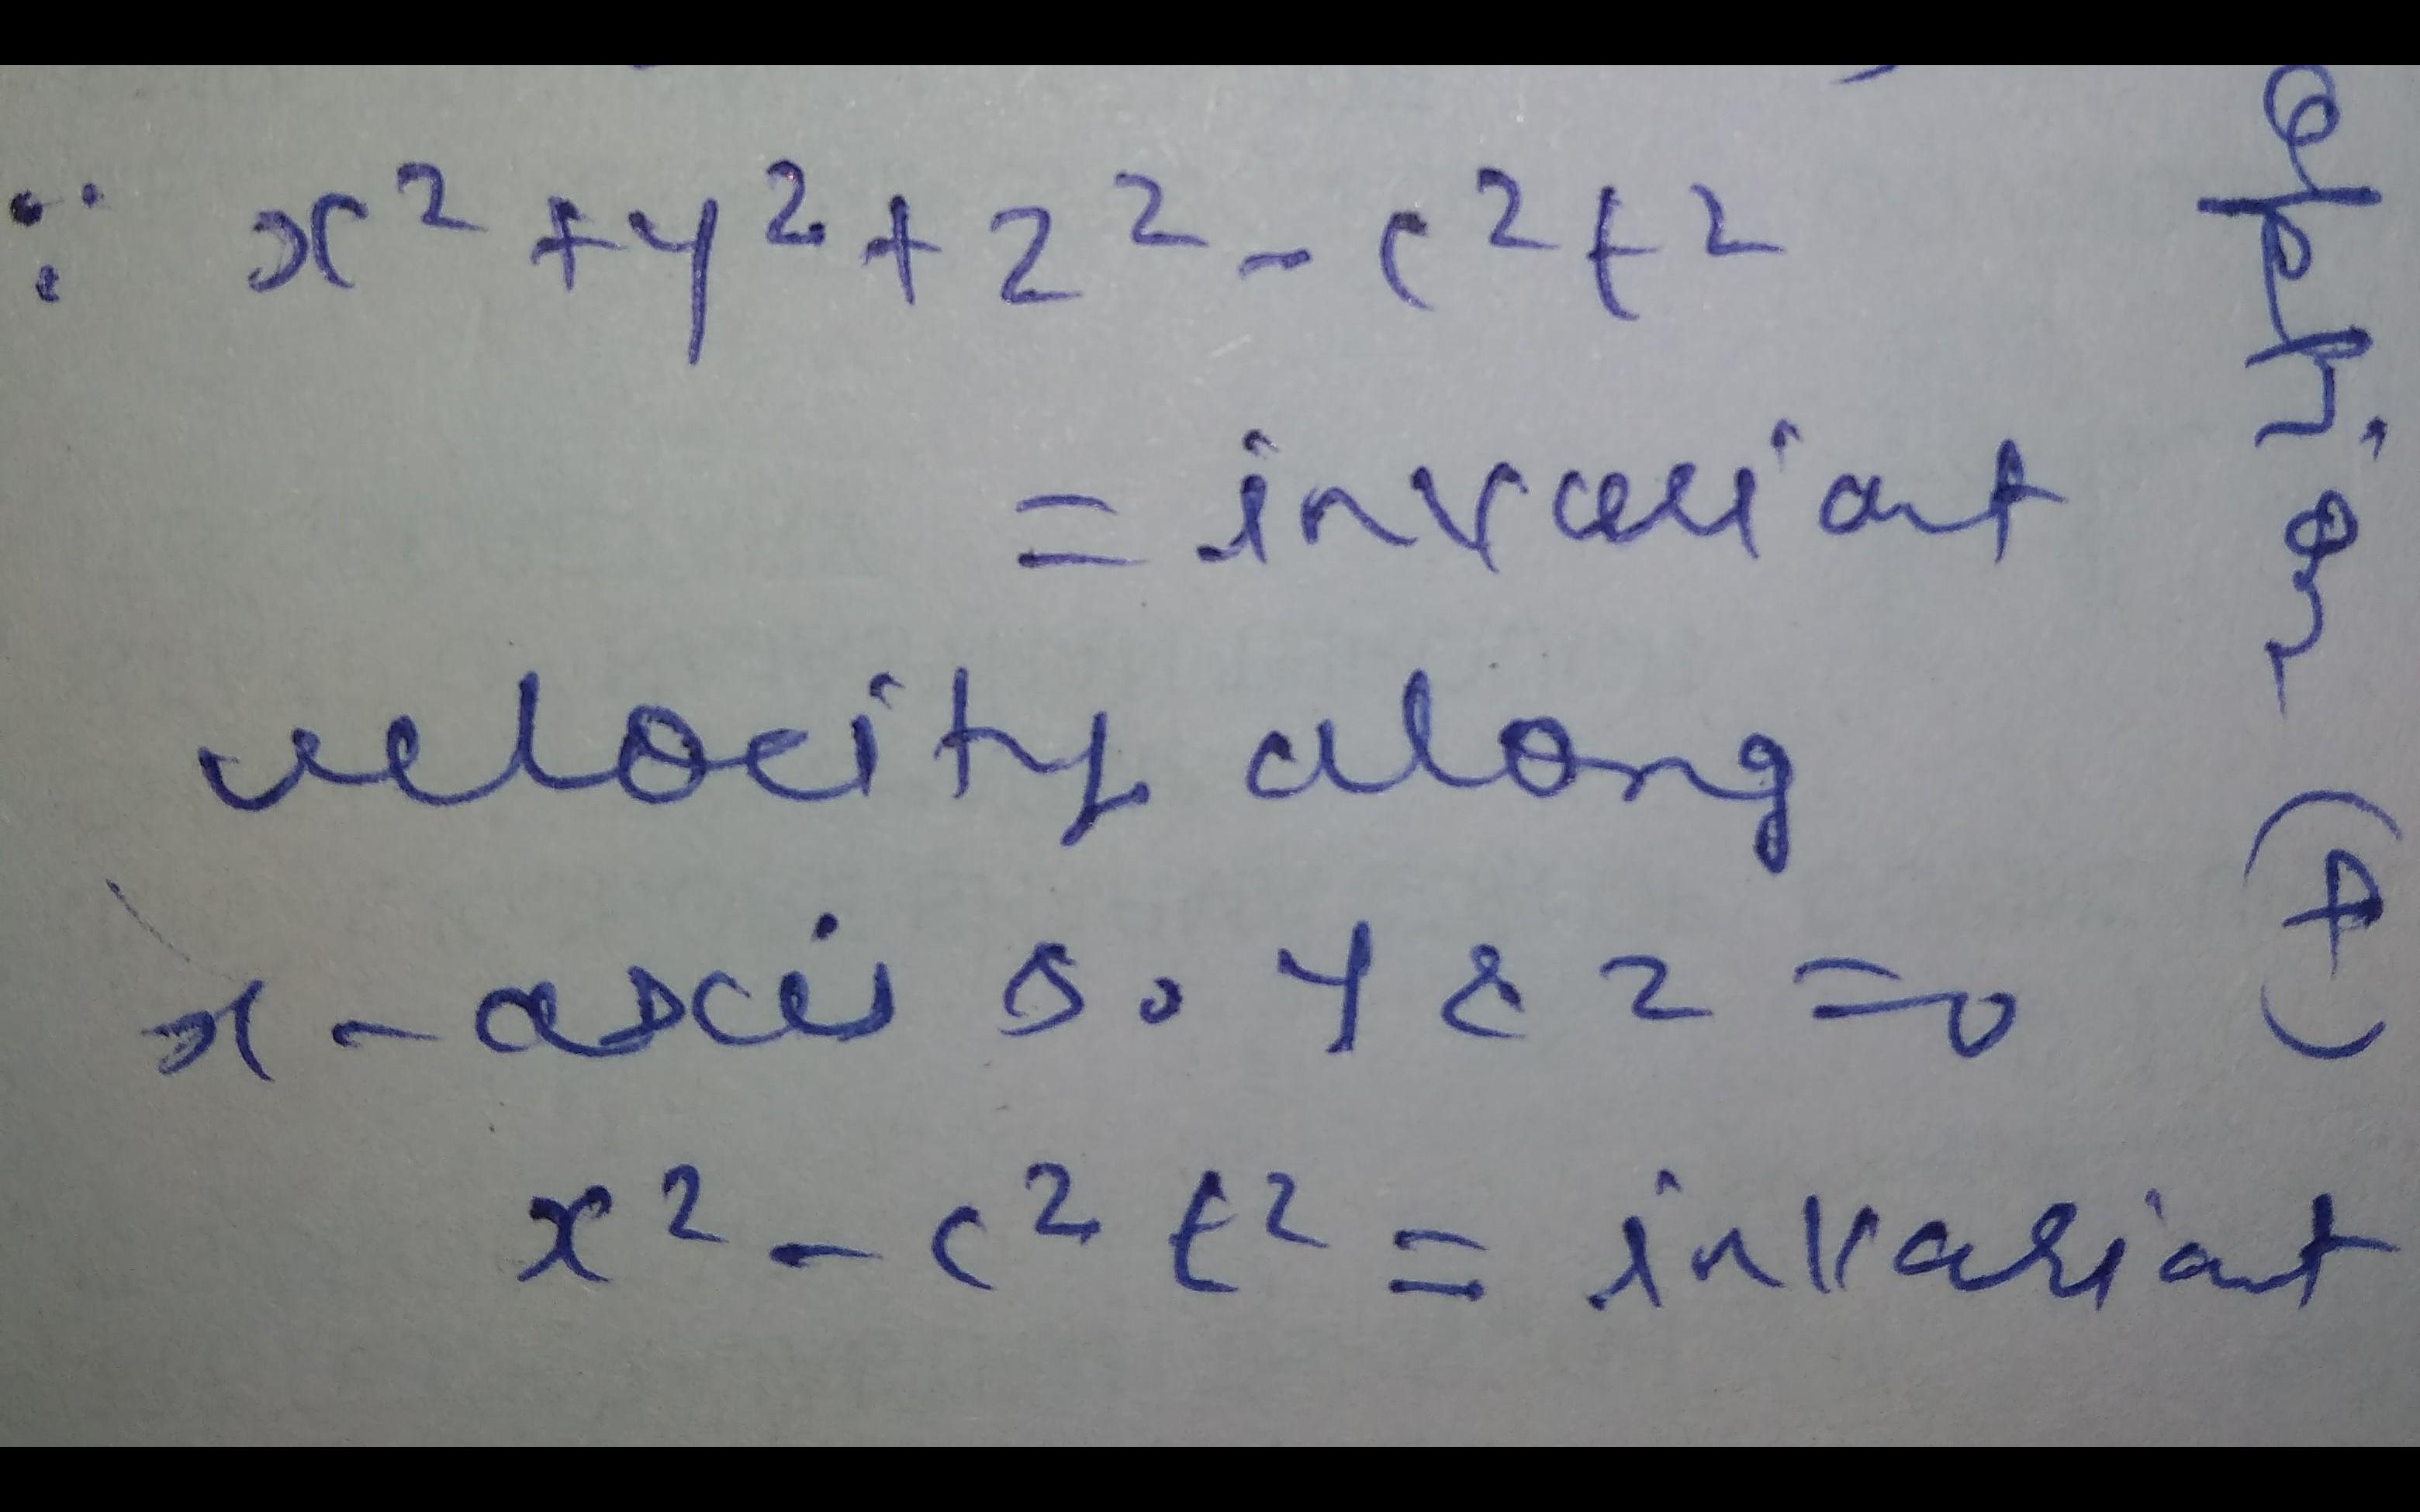 ∵ x² + y² + z² - c²t²
= invariant
velocity along
x-axis so y & z = 0
x² - c² t² = invariant